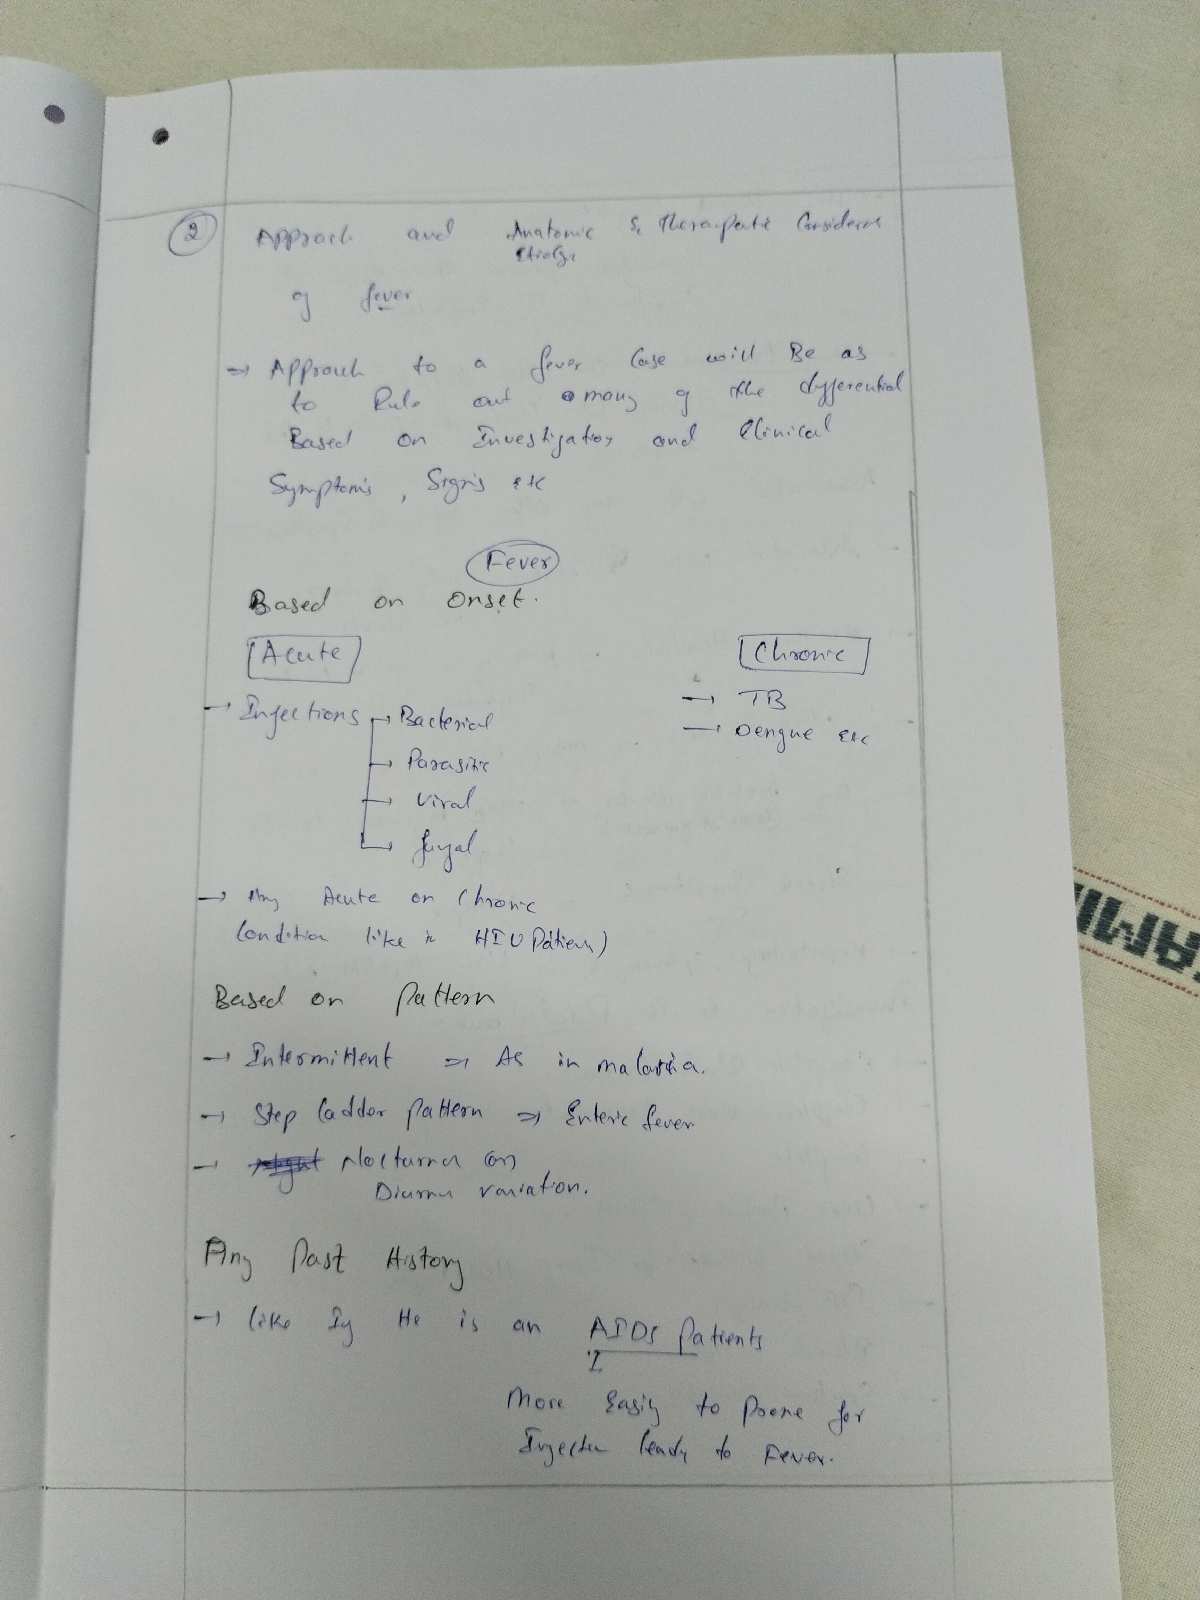 2 Approach and Anatomic & Therapatic Consideran
Etiology
of fever
→ Approach to a fever Case will Be as
to Rule out among of the differential
Based on Investigation and Clinical
Symptoms, Signs etc
Fever
Based on Onset.
Acute Chronic
→ Infections → Bacterial → TB
→ Parasitic → Dengue etc
→ Viral
→ fungal
→ Any Acute on Chronic
Condition like in HIV Patien)
Based on Pattern
→ Intermittent ⇒ As in malaria.
→ Step ladder pattern ⇒ Enteric fever
→ Nocturnal (or)
Diurnal variation.
Any Past History
→ like If He is an AIDS Patients
More Easily to Prone for
Infection leady to Fever.